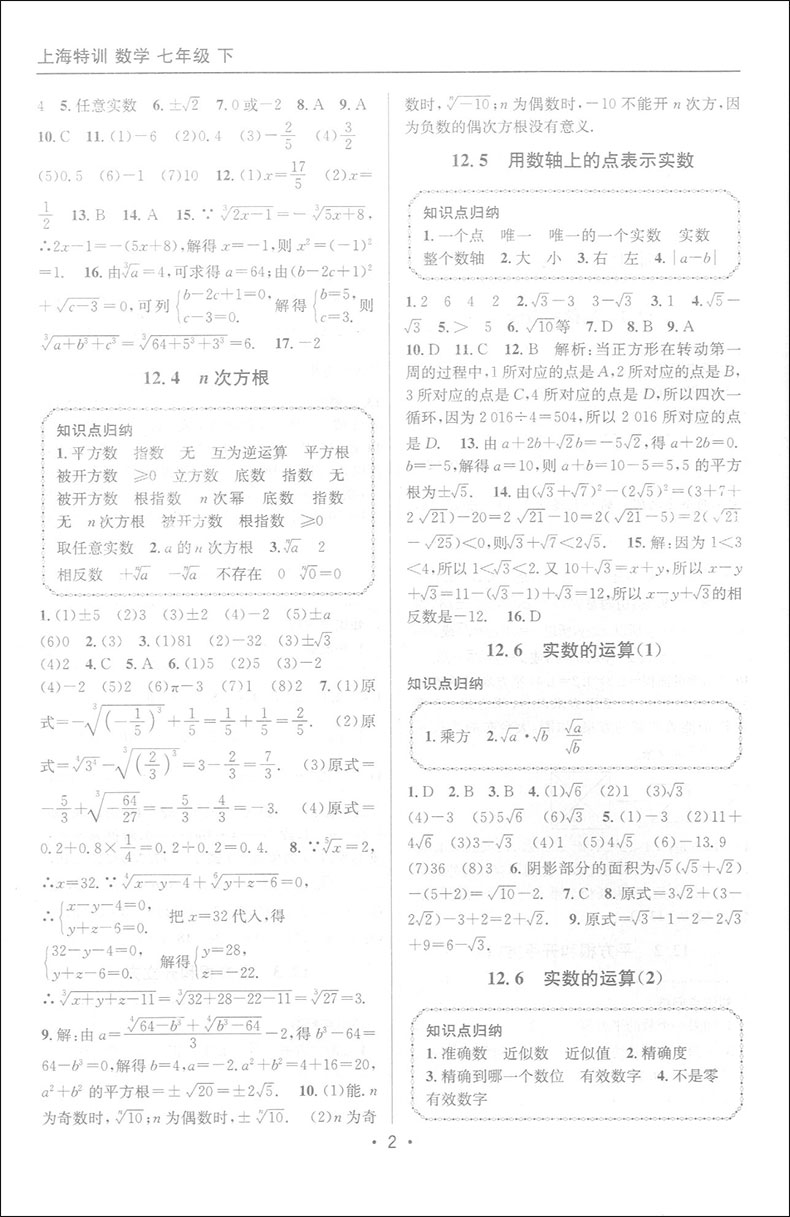 上海特训 数学 七年级 下
4 5.任意实数 6.±√2 7.0或-2 8.A 9.A
10.C 11.(1)-6 (2)0.4 (3)-2/5 (4)3/2
(5)0.5 (6)-1 (7)10 12.(1)x=17/5 (2)x=
1/2 13.B 14.A 15.∵∛(2x-1)=-∛(5x+8),
∴2x-1=-(5x+8),解得x=-1,则x²=(-1)²
=1. 16.由∛a=4,可求得a=64;由(b-2c+1)²
+√(c-3)=0,可列{b-2c+1=0, c-3=0. 解得{b=5, c=3. 则
∛(a+b³+c³)=∛(64+5³+3³)=6. 17.-2
12.4 n次方根
知识点归纳
1.平方数 指数 无 互为逆运算 平方根
被开方数 ≥0 立方数 底数 指数 无
被开方数 根指数 n次幂 底数 指数
无 n次方根 被开方数 根指数 ≥0
取任意实数 2.a的n次方根 3.ⁿ√a 2
相反数 +ⁿ√a -ⁿ√a 不存在 0 ⁿ√0=0
1.(1)±5 (2)3 (3)±2 (4)-2 (5)±a
(6)0 2.(3) 3.(1)81 (2)-32 (3)±√3
(4)2 4.C 5.A 6.(1)5 (2)5 (3)-2
(4)-2 (5)2 (6)π-3 (7)1 (8)2 7.(1)原
式=-∛((-1/5)³)+1/5=1/5+1/5=2/5. (2)原
式=⁴√(3⁴)-∛((2/3)³)=3-2/3=7/3. (3)原式=
-5/3+∛(-64/27)=-5/3-4/3=-3. (4)原式=
0.2+0.8×1/4=0.2+0.2=0.4. 8.∵⁵√x=2,
∴x=32.∵⁴√(x-y-4)+⁶√(y+z-6)=0,
∴{x-y-4=0, y+z-6=0. 把x=32代入,得
{32-y-4=0, y+z-6=0. 解得{y=28, z=-22.
∴∛(x+y+z-11)=∛(32+28-22-11)=∛27=3.
9.解:由a=(⁴√(64-b³)+⁴√(b³-64))/3-2,得b³-64=
64-b³=0,解得b=4,a=-2.a²+b²=4+16=20,
a²+b²的平方根=±√20=±2√5. 10.(1)能.n
为奇数时,ⁿ√10;n为偶数时,±ⁿ√10. (2)n为奇
数时,ⁿ√-10;n为偶数时,-10不能开n次方,因
为负数的偶次方根没有意义.
12.5 用数轴上的点表示实数
知识点归纳
1.一个点 唯一 唯一的一个实数 实数
整个数轴 2.大 小 3.右 左 4.|a-b|
1.2 6 4 2 2.√3-3 3-√3 3.1 4.√5-
√3 5.> 5 6.√10等 7.D 8.B 9.A
10.D 11.C 12.B 解析:当正方形在转动第一
周的过程中,1所对应的点是A,2所对应的点是B,
3所对应的点是C,4所对应的点是D,所以四次一
循环,因为2 016÷4=504,所以2 016所对应的点
是D. 13.由a+2b+√2b=-5√2,得a+2b=0.
b=-5,解得a=10,则a+b=10-5=5,5的平方
根为±√5. 14.由(√3+√7)²-(2√5)²=(3+7+
2√21)-20=2√21-10=2(√21-5)=2(√21
-√25)<0,则√3+√7<2√5. 15.解:因为1<3
<4,所以1<√3<2.又10+√3=x+y,所以x-y
+√3=11-(√3-1)+√3=12,所以x-y+√3的相
反数是-12. 16.D
12.6 实数的运算(1)
知识点归纳
1.乘方 2.√a·√b √a/√b
1.D 2.B 3.B 4.(1)√6 (2)1 (3)√3
(4)-3 (5)5√6 (6)√3 5.(1)-3 (2)11+
4√6 (3)3-√3 (4)1 (5)4√5 (6)-13.9
(7)36 (8)3 6.阴影部分的面积为√5(√5+√2)
-(5+2)=√10-2. 7.C 8.原式=3√2+(3-
2√2)-3+2=2+√2. 9.原式=√3-1-2-2√3
+9=6-√3.
12.6 实数的运算(2)
知识点归纳
1.准确数 近似数 近似值 2.精确度
3.精确到哪一个数位 有效数字 4.不是零
有效数字
• 2 •